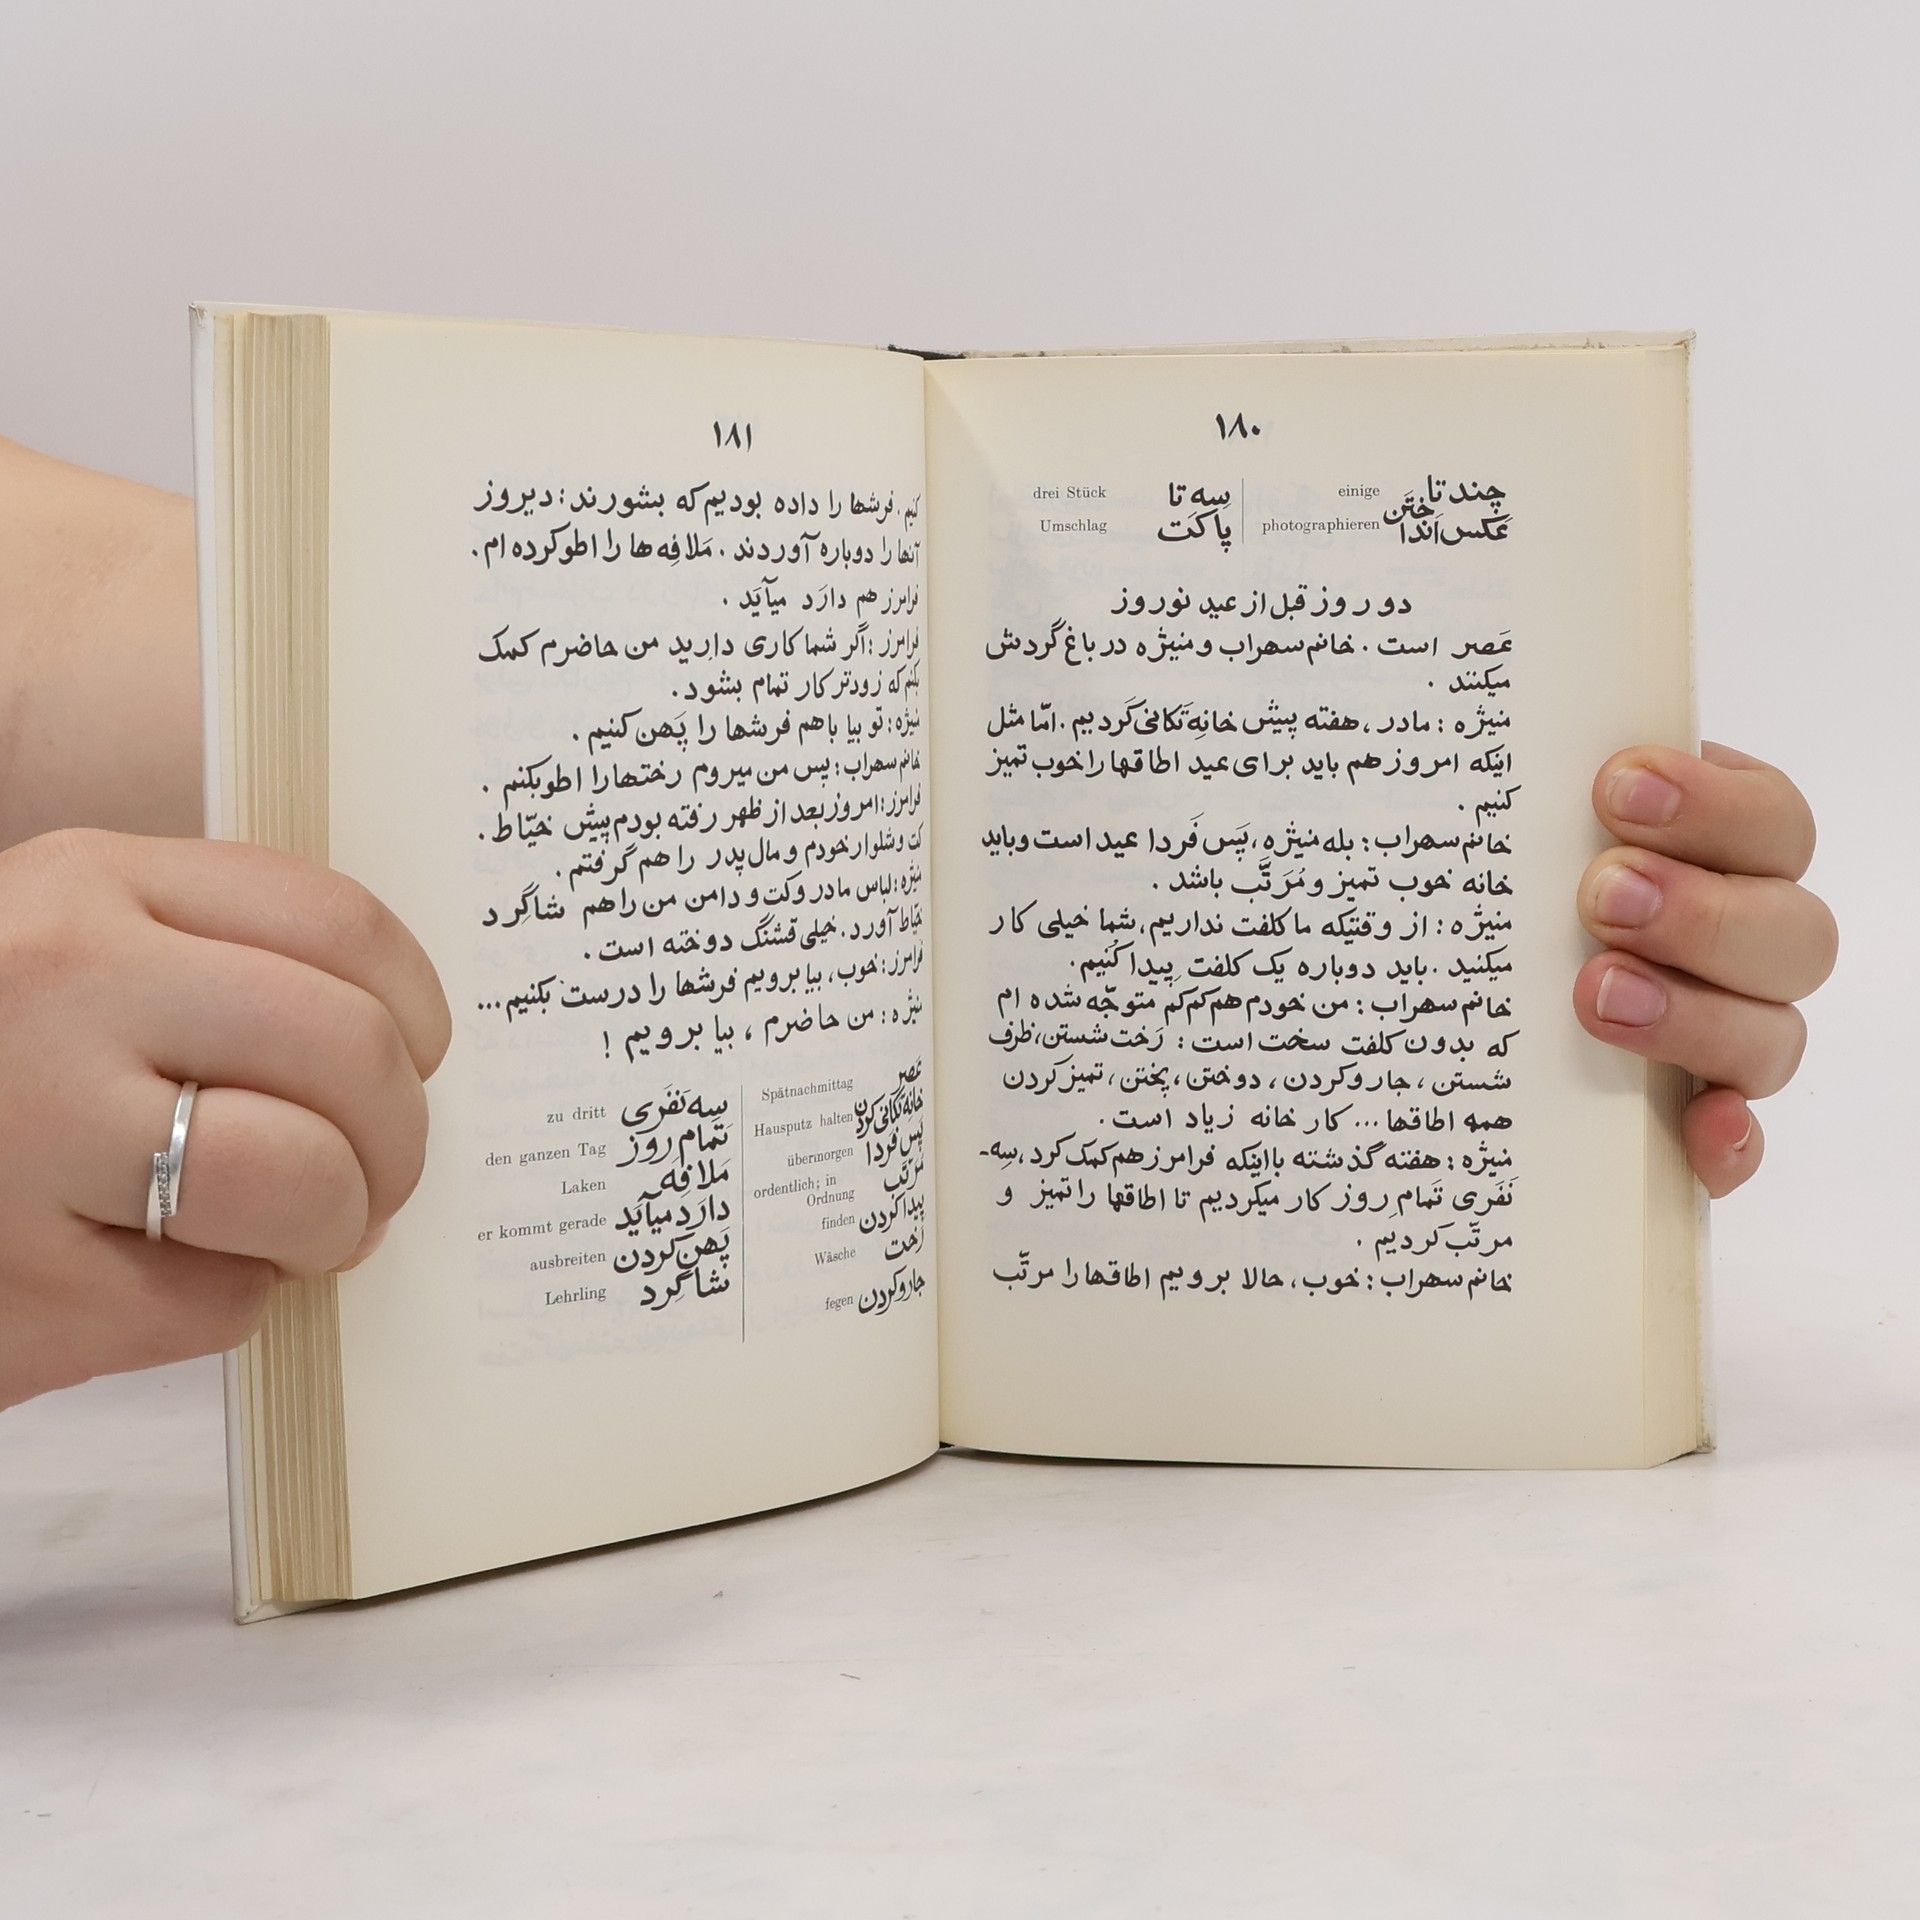 ۱۸۰
چند تا einige سِه تا drei Stück
عَکس اَنداختَن photographieren پاکَت Umschlag
دو روز قبل از عید نوروز
عَصر است. خانم سهراب و منیژه در باغ گردش
میکنند .
منیژه : مادر، هفته پیش خانِه تَکانی کَردیم. امّا مثل
اینکه امروز هم باید برای عید اطاقها را خوب تمیز
کنیم .
خانم سهراب : بله منیژه، پَس فَردا عید است و باید
خانه خوب تمیز و مُرَتَّب باشد .
منیژه : از وقتیکه ما کلفت نداریم، شما خیلی کار
میکنید . باید دوباره یک کلفت پِیدا کُنیم.
خانم سهراب : من خودم هم کم کم متوجّه شده ام
که بدون کلفت سخت است : رَخت شستن، ظرف
شستن ، جارو کردن ، دوختن ، پختن ، تمیز کردن
همه اطاقها ... کار خانه زیاد است .
منیژه : هفته گذشته با اینکه فرامرز هم کمک کرد، سِه-
نَفَری تَمامِ روز کار میکردیم تا اطاقها را تمیز و
مرتّب کردیم .
خانم سهراب : خوب، حالا برویم اطاقها را مرتّب
۱۸۱
کنیم. فرشها را داده بودیم که بشورند : دیروز
آنها را دوباره آوردند . مَلافِه ها را اطو کرده ام .
فرامرز هم دارَد میآیَد .
فرامرز : اگر شما کاری دارید من حاضرم کمک
بکنم که زودتر کار تمام بشود .
منیژه : تو بیا با هم فرشها را پَهن کنیم .
خانم سهراب : پس من میروم رختها را اطو بکنم .
فرامرز : امروز بعد از ظهر رفته بودم پیش خیّاط .
کت و شلوار خودم و مال پدر را هم گرفتم .
منیژه : لباس مادر و کت و دامن من را هم شاگِرد
خیّاط آورد . خیلی قشنگ دوخته است .
فرامرز : خوب، بیا برویم فرشها را درست بکنیم ...
منیژه : من حاضرم ، بیا برویم !
عَصر Spätnachmittag
خانِه تَکانی کَردَن Hausputz halten
پَس فَردا übermorgen
مُرَتَّب ordentlich; in
Ordnung
پِیدا کَردَن finden
رَخت Wäsche
جارو کَردَن fegen
سِه نَفَری zu dritt
تَمامِ روز den ganzen Tag
مَلافِه Laken
دارَد میآیَد er kommt gerade
پَهن کَردَن ausbreiten
شاگِرد Lehrling